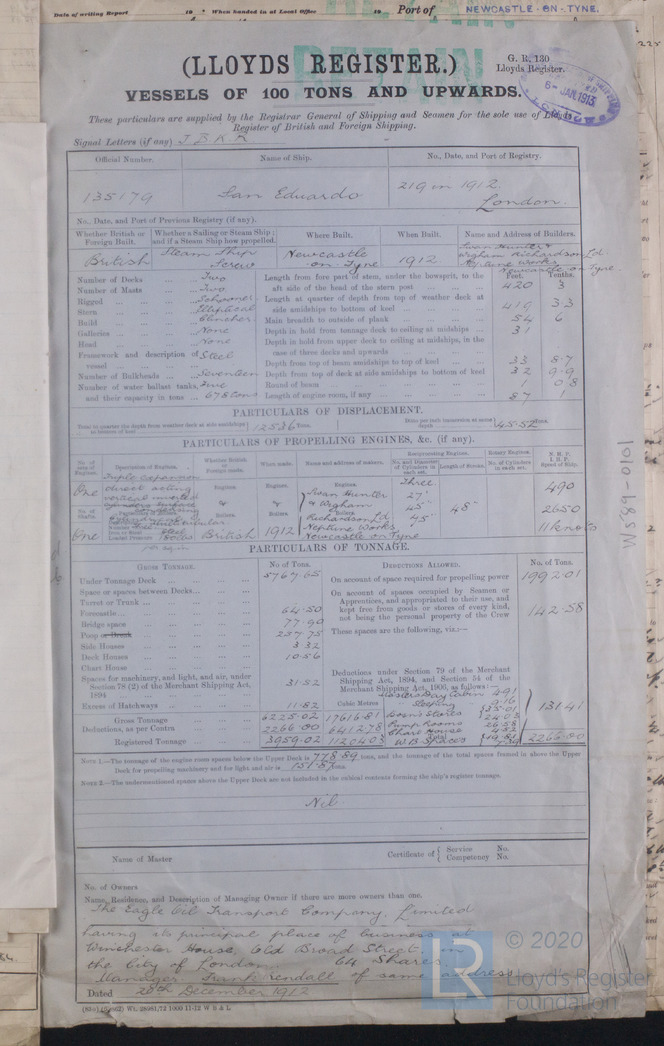 Date of writing Report 19 When handed in at Local Office 19 Port of NEWCASTLE-ON-TYNE.
RETAIN
(LLOYDS REGISTER.)
G. R. 130
Lloyds Register.
6-JAN.1913
VESSELS OF 100 TONS AND UPWARDS.
These particulars are supplied by the Registrar General of Shipping and Seamen for the sole use of Lloyds
Register of British and Foreign Shipping.
Signal Letters (if any) J B K R
Official Number. Name of Ship. No., Date, and Port of Registry.
135179 San Eduardo 219 in 1912.
London.
No., Date, and Port of Previous Registry (if any).
Whether British or Foreign Built. Whether a Sailing or Steam Ship; and if a Steam Ship how propelled. Where Built. When Built. Name and Address of Builders.
British Steam Ship Screw Newcastle on Tyne 1912 Swan Hunter & Wigham Richardson Ld. Neptune Works Newcastle on Tyne
Feet. Tenths.
Number of Decks Two
Number of Masts Two
Rigged Schooner
Stern Elliptical
Build Clincher
Galleries None
Head None
Framework and description of vessel Steel
Number of Bulkheads Seventeen
Number of water ballast tanks, Five
and their capacity in tons 678 tons
Length from fore part of stem, under the bowsprit, to the
aft side of the head of the stern post 420 3
Length at quarter of depth from top of weather deck at
side amidships to bottom of keel 419 3.3
Main breadth to outside of plank 54 6
Depth in hold from tonnage deck to ceiling at midships 31
Depth in hold from upper deck to ceiling at midships, in the
case of three decks and upwards
Depth from top of beam amidships to top of keel 33 8.7
Depth from top of deck at side amidships to bottom of keel 32 9.9
Round of beam 1 0.8
Length of engine room, if any 87 1
PARTICULARS OF DISPLACEMENT.
Tons to quarter the depth from weather deck at side amidships to bottom of keel 12536 Tons. Ditto per inch immersion at same depth 45.52 Tons.
PARTICULARS OF PROPELLING ENGINES, &c. (if any).
No. of sets of Engines. Description of Engines. Whether British or Foreign made. When made. Name and address of makers. Reciprocating Engines. Rotary Engines. N. H. P. I. H. P. Speed of Ship.
No. and Diameter of Cylinders in each set. Length of Stroke. No. of Cylinders in each set.
One Triple expansion direct acting vertical inverted
Engines. Engines. Engines.
Swan Hunter & Wigham Richardson Ld. Neptune Works, Newcastle on Tyne
Three 27" 45" 48"
490
2650
11 knots
No. of Shafts.
One Boilers British Boilers 1912 Boilers
PARTICULARS OF TONNAGE.
GROSS TONNAGE. No. of Tons. DEDUCTIONS ALLOWED. No. of Tons.
Under Tonnage Deck 5767.65
Space or spaces between Decks
Turret or Trunk
Forecastle 64.50
Bridge space 77.90
Poop or Break 237.75
Side Houses 3.32
Deck Houses 10.56
Chart House
Spaces for machinery, and light, and air, under
Section 78 (2) of the Merchant Shipping Act,
1894 31.82
Excess of Hatchways 11.82
On account of space required for propelling power 1992.01
On account of spaces occupied by Seamen or
Apprentices, and appropriated to their use, and
kept free from goods or stores of every kind,
not being the personal property of the Crew 142.58
These spaces are the following, viz.:—
Deductions under Section 79 of the Merchant
Shipping Act, 1894, and Section 54 of the
Merchant Shipping Act, 1906, as follows:—
Cubic Metres
Gross Tonnage 6225.02 17616.81
Deductions, as per Contra 2266.00 6412.78
Registered Tonnage 3959.02 11204.03
Masters Day Cabin 4.91
Sleeping 9.16
Bosn's Stores 24.03
Pump Rooms 26.58
131.41
Total 2266.00
NOTE 1.—The tonnage of the engine room spaces below the Upper Deck is 778.89 tons, and the tonnage of the total spaces framed in above the Upper
Deck for propelling machinery and for light and air is tons.
NOTE 2.—The undermentioned spaces above the Upper Deck are not included in the cubical contents forming the ship's register tonnage.
Nil.
Name of Master Certificate of { Service No. Competency No.
No. of Owners
Name, Residence, and Description of Managing Owner if there are more owners than one.
The Eagle Oil Transport Company, Limited
having its principal place of business at
Winchester House, Old Broad Street, in
the City of London. 64 Shares.
Manager Frank Tendall of same address
Dated 20th December 1912
W589-0101
LR © 2020
Lloyd's Register
Foundation